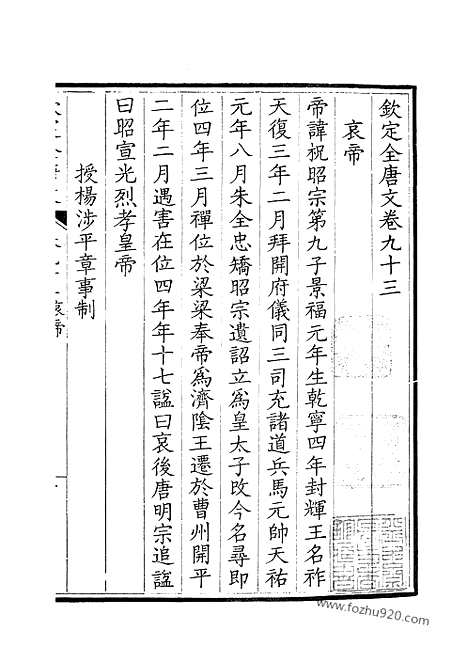 欽定全唐文卷九十三
哀帝
帝諱祝昭宗第九子景福元年生乾寧四年封輝王名祚
天復三年二月拜開府儀同三司充諸道兵馬元帥天祐
元年八月朱全忠矯昭宗遺詔立爲皇太子改今名尋即
位四年三月禪位於梁梁奉帝爲濟陰王遷於曹州開平
二年二月遇害在位四年年十七諡曰哀後唐明宗追諡
曰昭宣光烈孝皇帝
授楊涉平章事制
哀帝
www.fozhu920.com